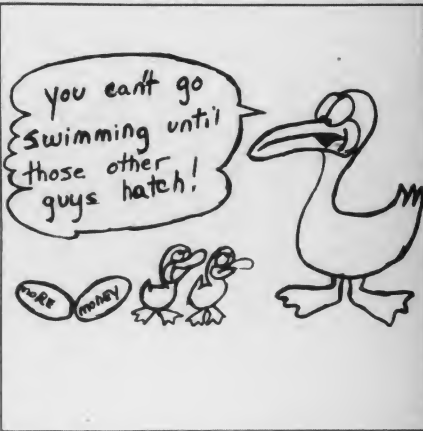 you can't go
swimming until
those other
guys hatch!
MORE
MONEY